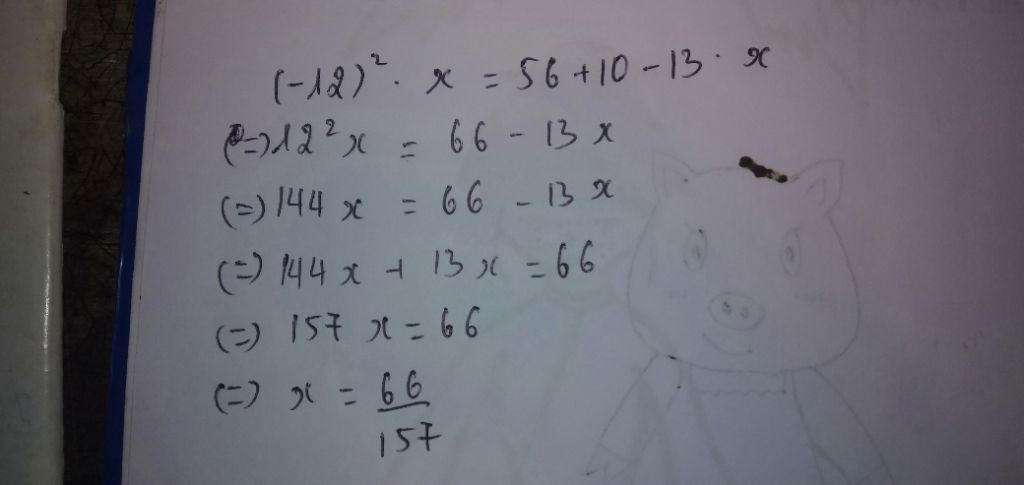 (-12)² . x = 56 + 10 - 13 . x
(=) 12² x = 66 - 13 x
(=) 144 x = 66 - 13 x
(=) 144 x + 13 x = 66
(=) 157 x = 66
(=) x = 66/157